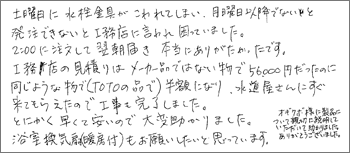 土曜日に水栓金具がこわれてしまい、月曜日以降でないと
発注できないと工務店に言われ困っていました。
2:00に注文して翌朝届き本当にありがたかったです。
工務店の見積りはメーカー品ではない物で56,000円だったのに
同じような物で(TOTOの品で)半額になり、水道屋さんにすぐ
来てもらえたので工事も完了しました。
とにかく早くて安いので大変助かりました。
浴室換気扇(暖房付)もお願いしたいと思っています。
様に製品に
ついて親切に説明して
いただいて助かりました
ありがとうございました